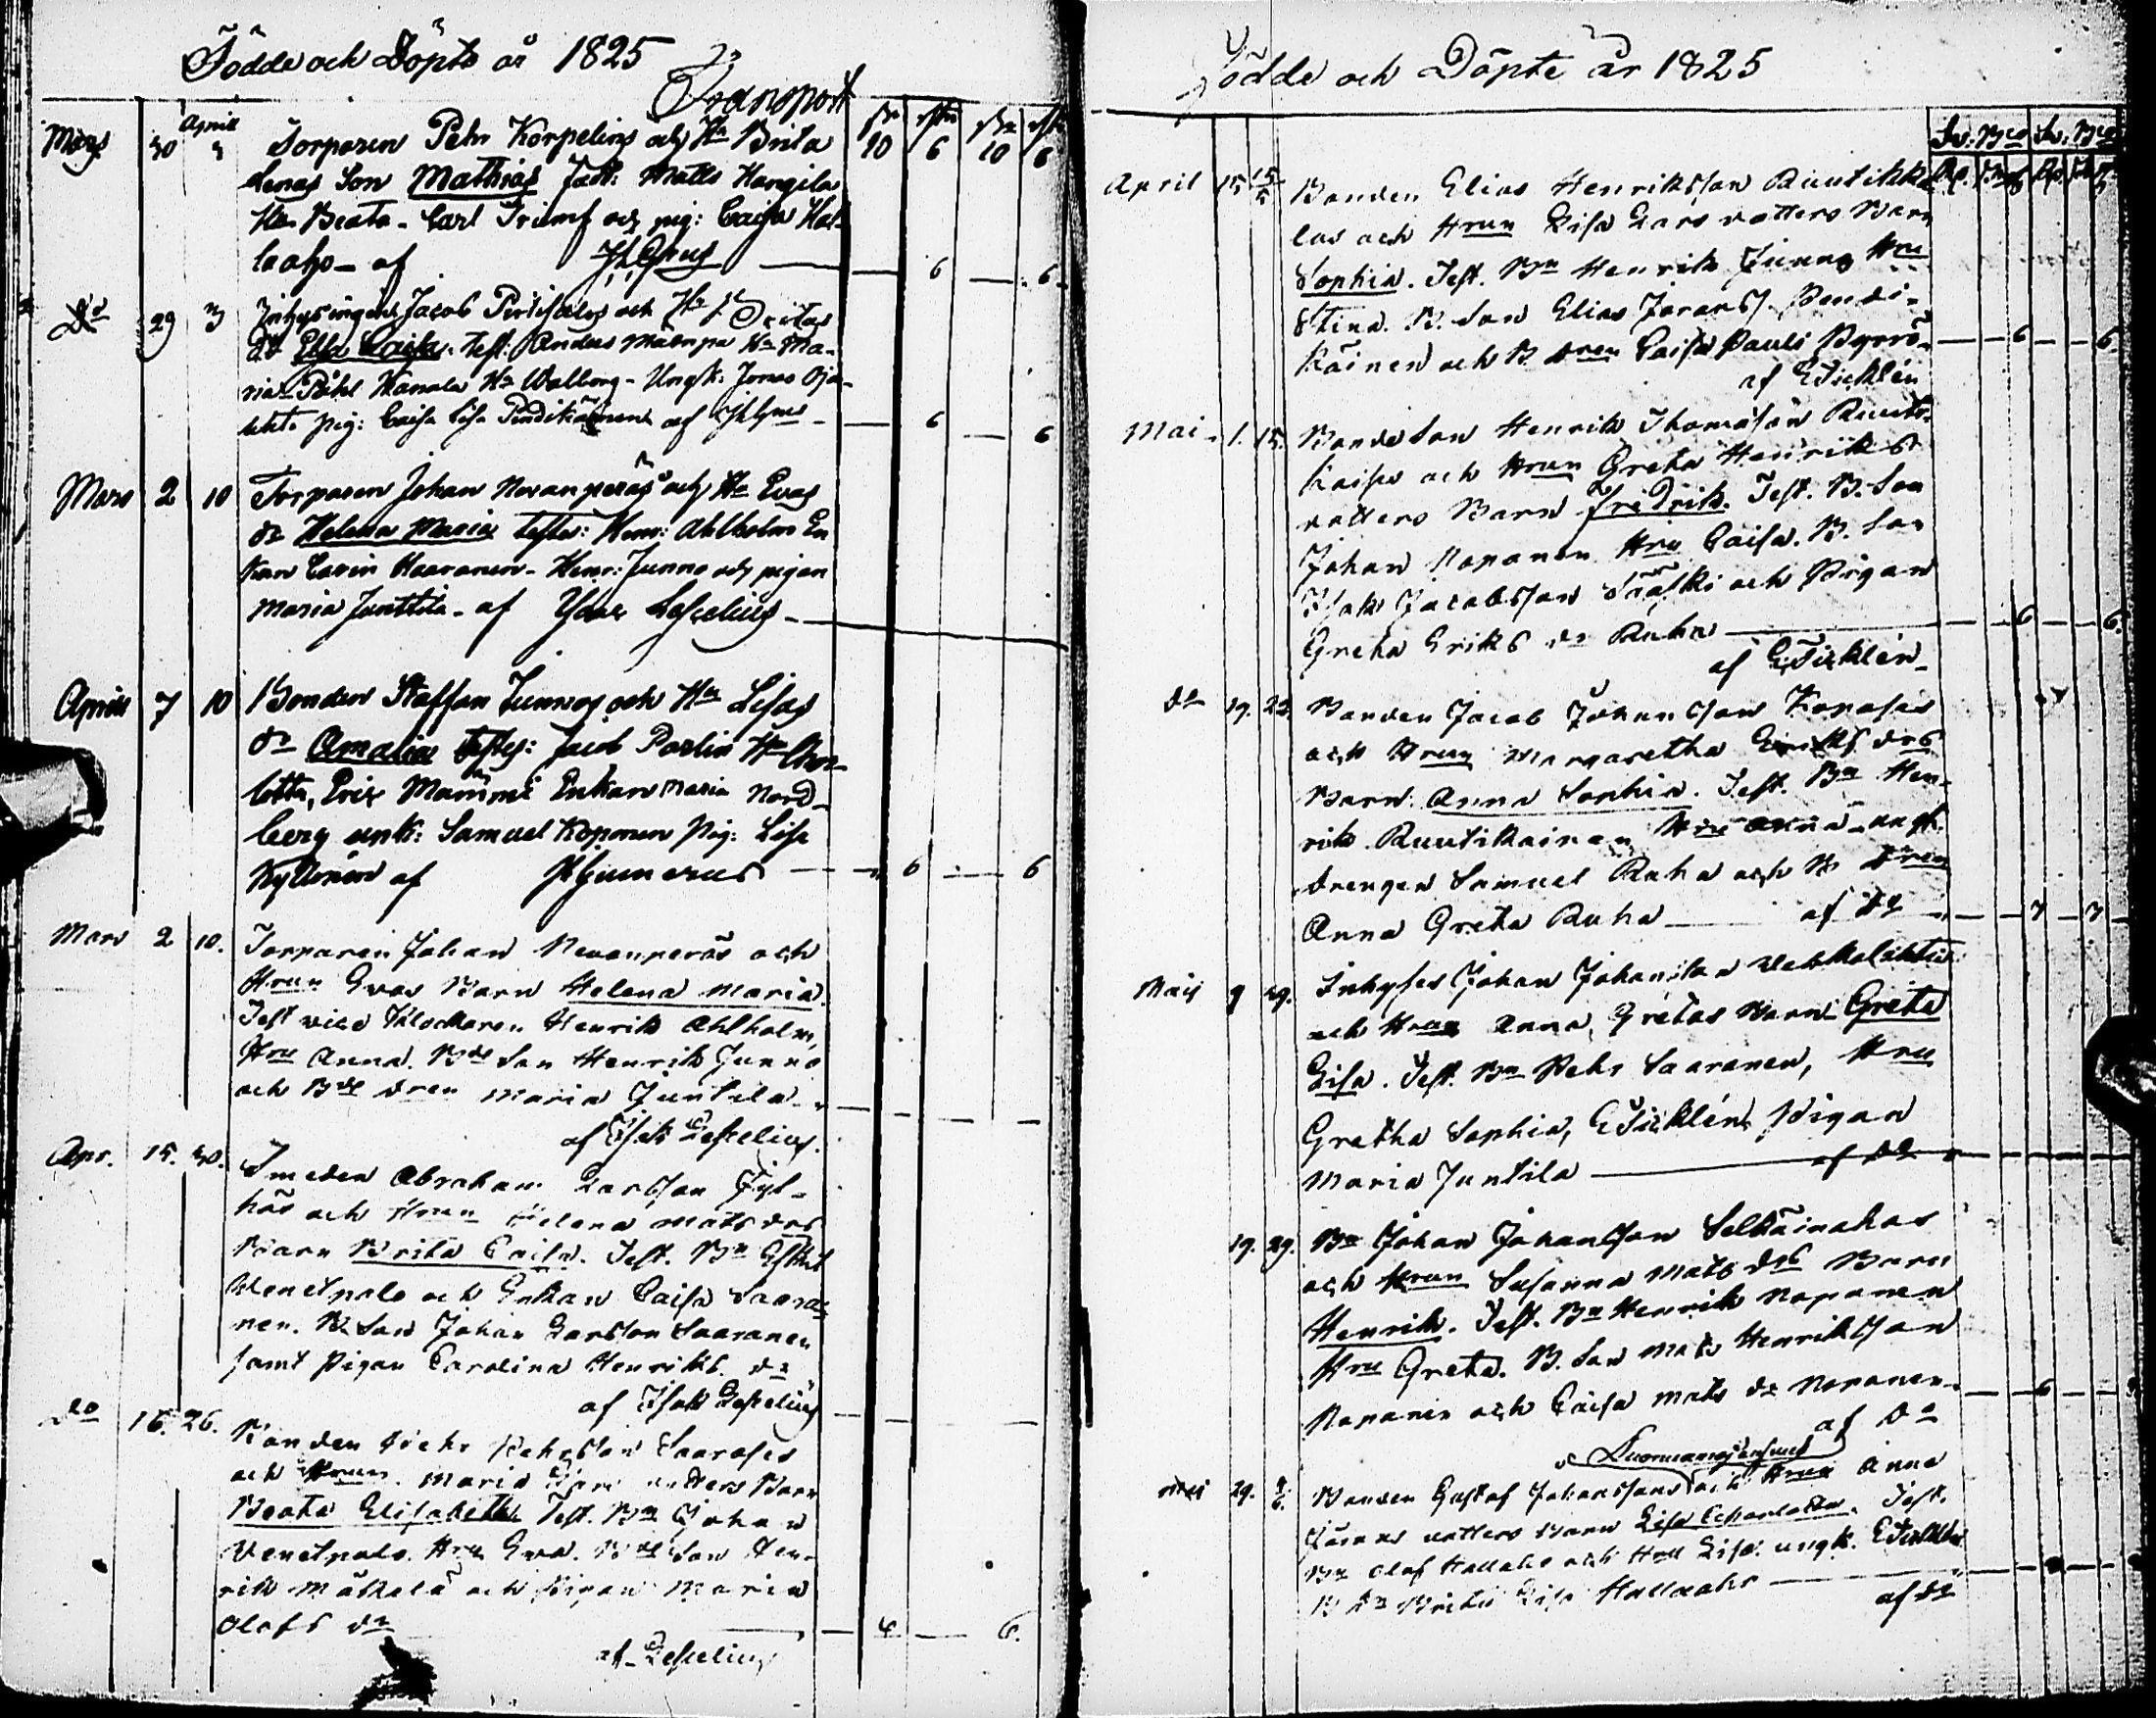 Födde och Döpte år 1825
Transport
Mars 30 April 3 Torparen Pehr Korpelins och Hu Brita
Lenas Son Mathias Test: Matts Hangila
Hu Beata - Carl Triumf och pig: Caisa Hal-
laho - af 6 6
Do 29 3 Inhysingens Jacob och Hu
dr Elsa Caisa. Test: Anders Määttä Hu Ma-
ria - Påhl Kanala Hu Walborg - Ungk: Jonas Oja-
lehto pig: Caisa Lisa Pendikäinen af 6 6
Mars 2 10 Torparen Johan Nevanperäs och Hu Evas
dr Helena Maria testes: Henr: Ahlholm En
kan Carin Haaranen - Henr: Junno och pigan
Maria Junttila - af Isac Leserelius
April 7 10 Bonden Staffan Junnos och Hu Lisas
dr Amalia testes: Jacob Hu Char-
lotta, Eric Mammi Enkan Maria Nord-
berg unk: Samuel Koponen pig: Lisa
Kyllönen af 6 6
Mars 2 10. Torparen Johan Nevanperäs och
Hrun Evas Barn Helena Maria.
Test vice Klockaren Henrik Ahlholm,
Hru Anna. Bde Son Henrik Junno
och Bde dren Maria Juntila
af Isak
Apr. 15. 30. Smeden Abraham Larsson
och Hrun Helena Mats drs
Barn Brita Caisa. Test. Bn
Venetpalo och Enkan Caisa Saara-
nen. B. Son Johan Larsson Saaranen
samt Pigan Carolina Henriks dr
af Isak
do 16. 26. Bonden Pehr Pehrsson Saarases
och Hrun Maria dotters Barn
Beata Elisabeth Test. Bn Johan
Venetpalo. Hru Eva. Bde Son Hen-
rik Mäkelä och Pigan Maria
Olofs dr 4 6.
af
Födde och Döpte år 1825
Sv: Bco Sv: Bco
April 15 15/5 Bonden Elias Henriksson Ruutikka
las och Hrun Lisa Lars dotters Barn
Sophia. Test. Bn Henrik Junno Hru
Stina. B. Son Elias Joranss. Pendi-
käinen och B. dren Caisa Pauls Pyrrö 6 6
af E Ticklén
Mai 1. 15. Bonde Son Henrik Thomasson Ruuti-
kaises och Hrun Greta Henriks
dotters Barn Fredrik. Test. B. Son
Johan Koponen Hru Caisa. B. Son
Isak Jacobsson Sääski och Pigan
Greta Eriks dr Ruha 6 6.
af E Ticklén
do 19. 22. Bonden Jacob Johansson Koposes
och Hrun Margaretha Eriks drs
Barn: Anna Sophia. Test. Bn Hen-
rik Ruutikainen Hru Anna ungk.
drengen Samuel Ruha och B dren
Anna Greta Ruha af do 7 7
Maij 9 29. Inhyses Johan Johansson
och Hrun Anna Gretas Barn Greta
Lisa. Test. Bn Pehr Saaranen, Hru
Gretha Sophia, E Ticklén Pigan
Maria Juntila af do
19. 29. Bn Johan Johansson Selkäinahos
och Hrun Susanna Mats drs Barn
Henrik. Test. Bn Henrik Koponen
Hru Greta. B. Son Mats Henriksson
Koponen och Caisa Mats dr Koponen 6
af do
Maij 29. Bonden Gustaf Johanssons och Hrun Anna
Görans dotters Barn Lisa Charlotta. Test.
Bn Olof Hallaho och Hru Lisa. ungk. E Ticklén
B dr Brita Lisa Hallaho
af do